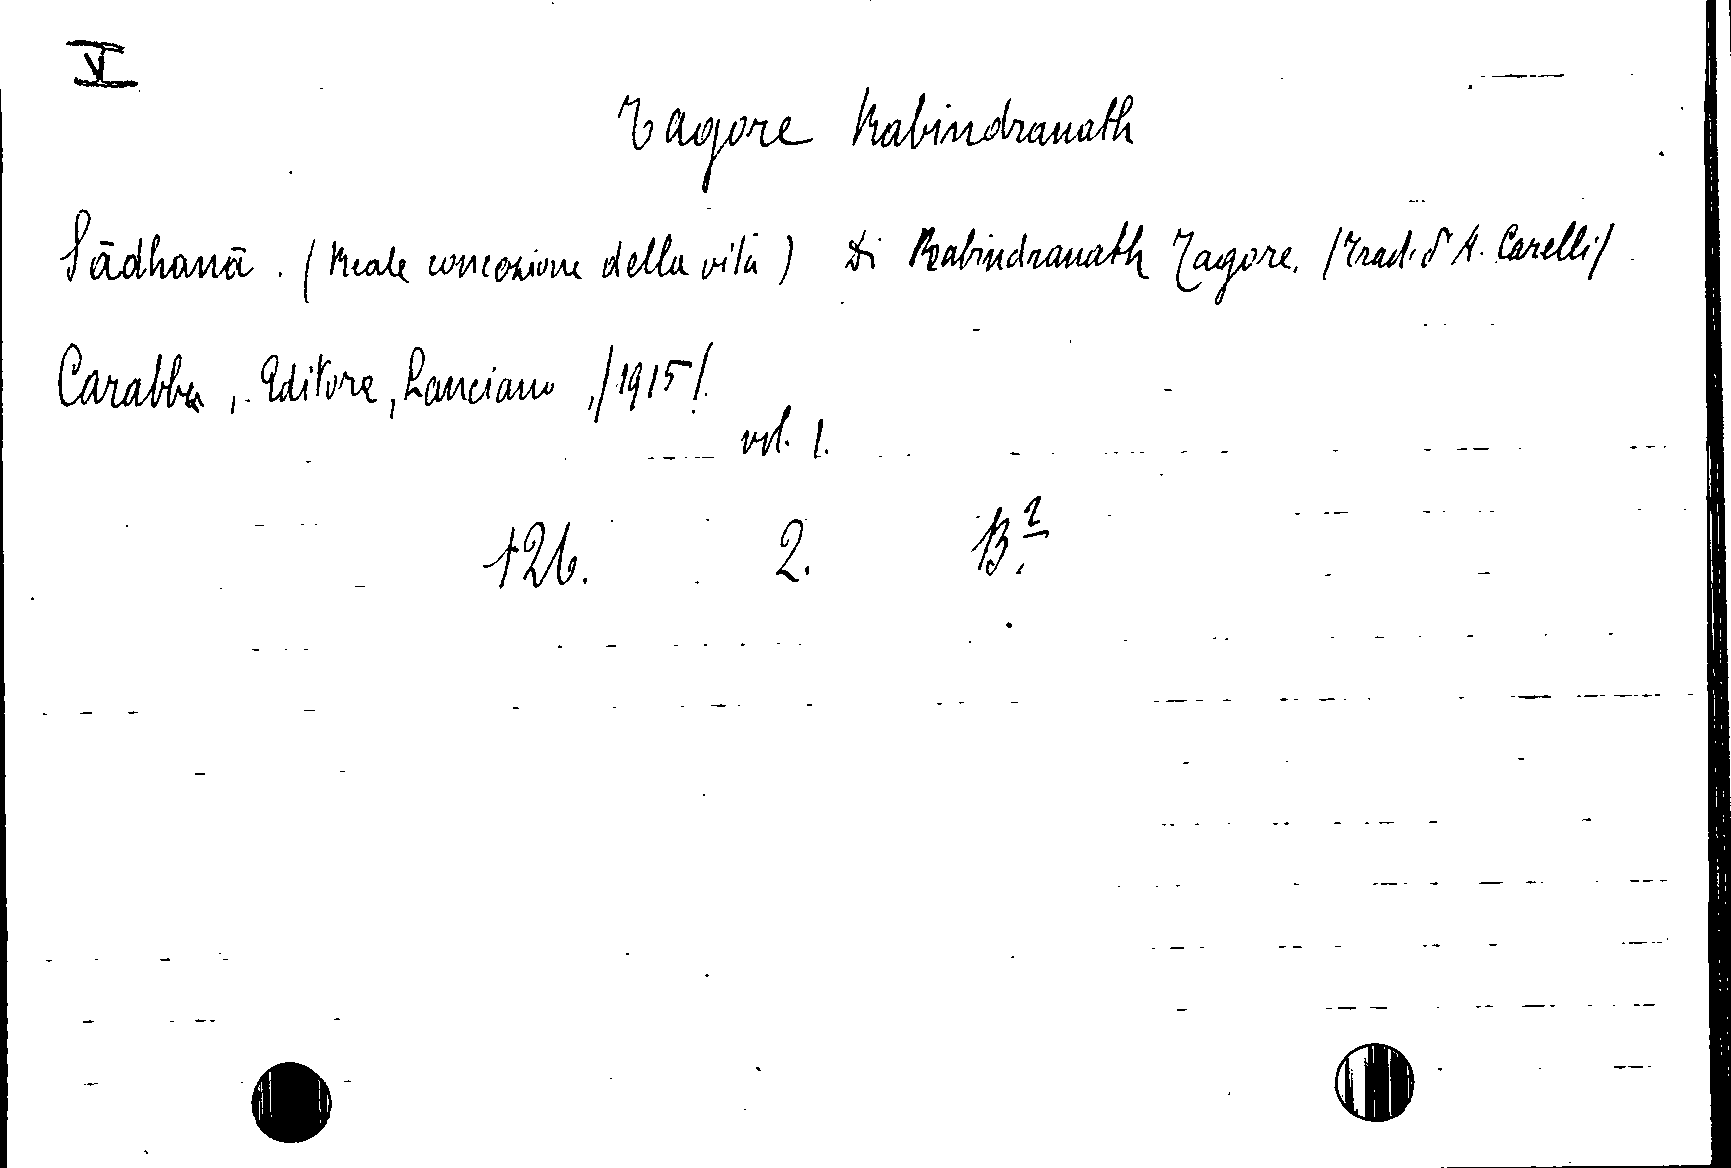 V
Tagore Rabindranath
Sādhanā. (Reale concezione della vita) Di Rabindranath Tagore. /Trad. d' A. Carelli/
Carabba, Editore, Lanciano, /1915/.
vol. 1.
126. 2. B.2